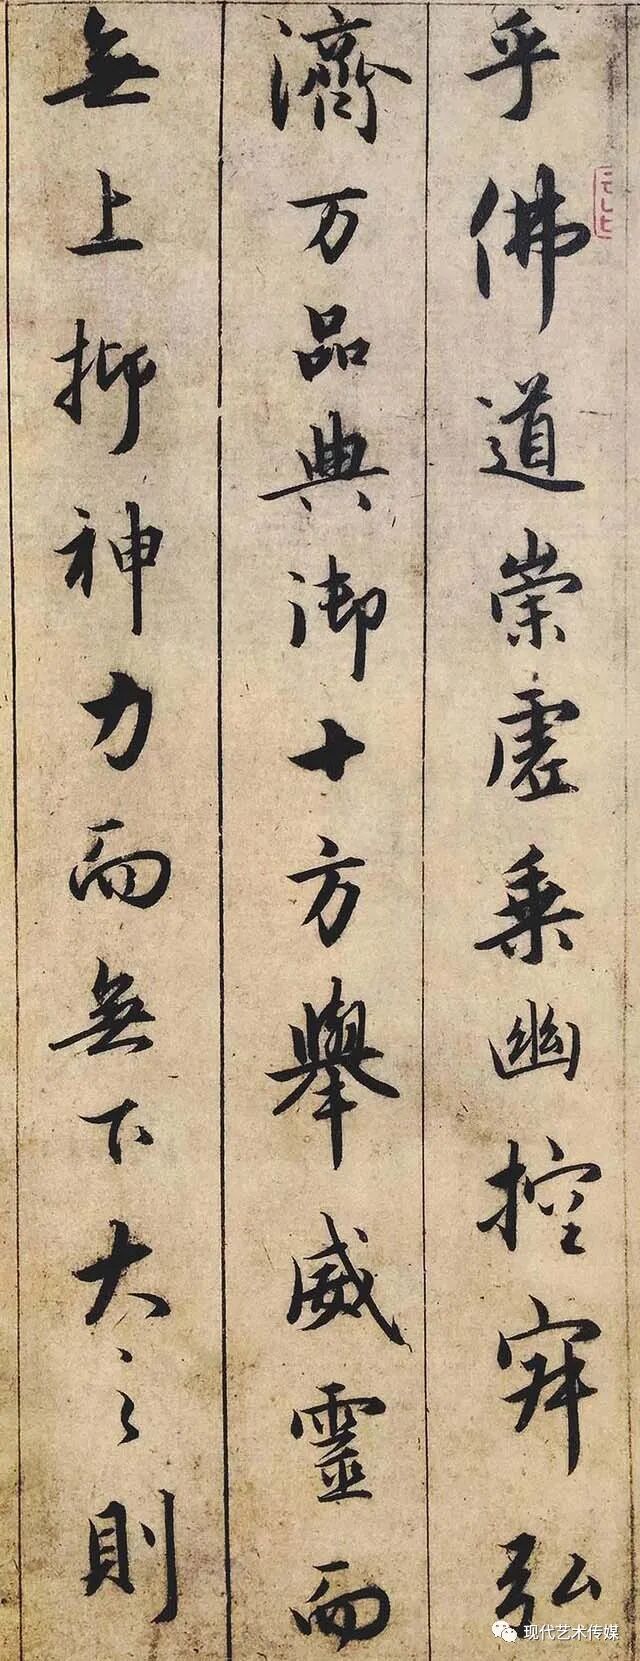 乎佛道崇虛乘幽控寂弘
濟万品典御十方舉威靈而
無上抑神力而無下大之則
现代艺术传媒